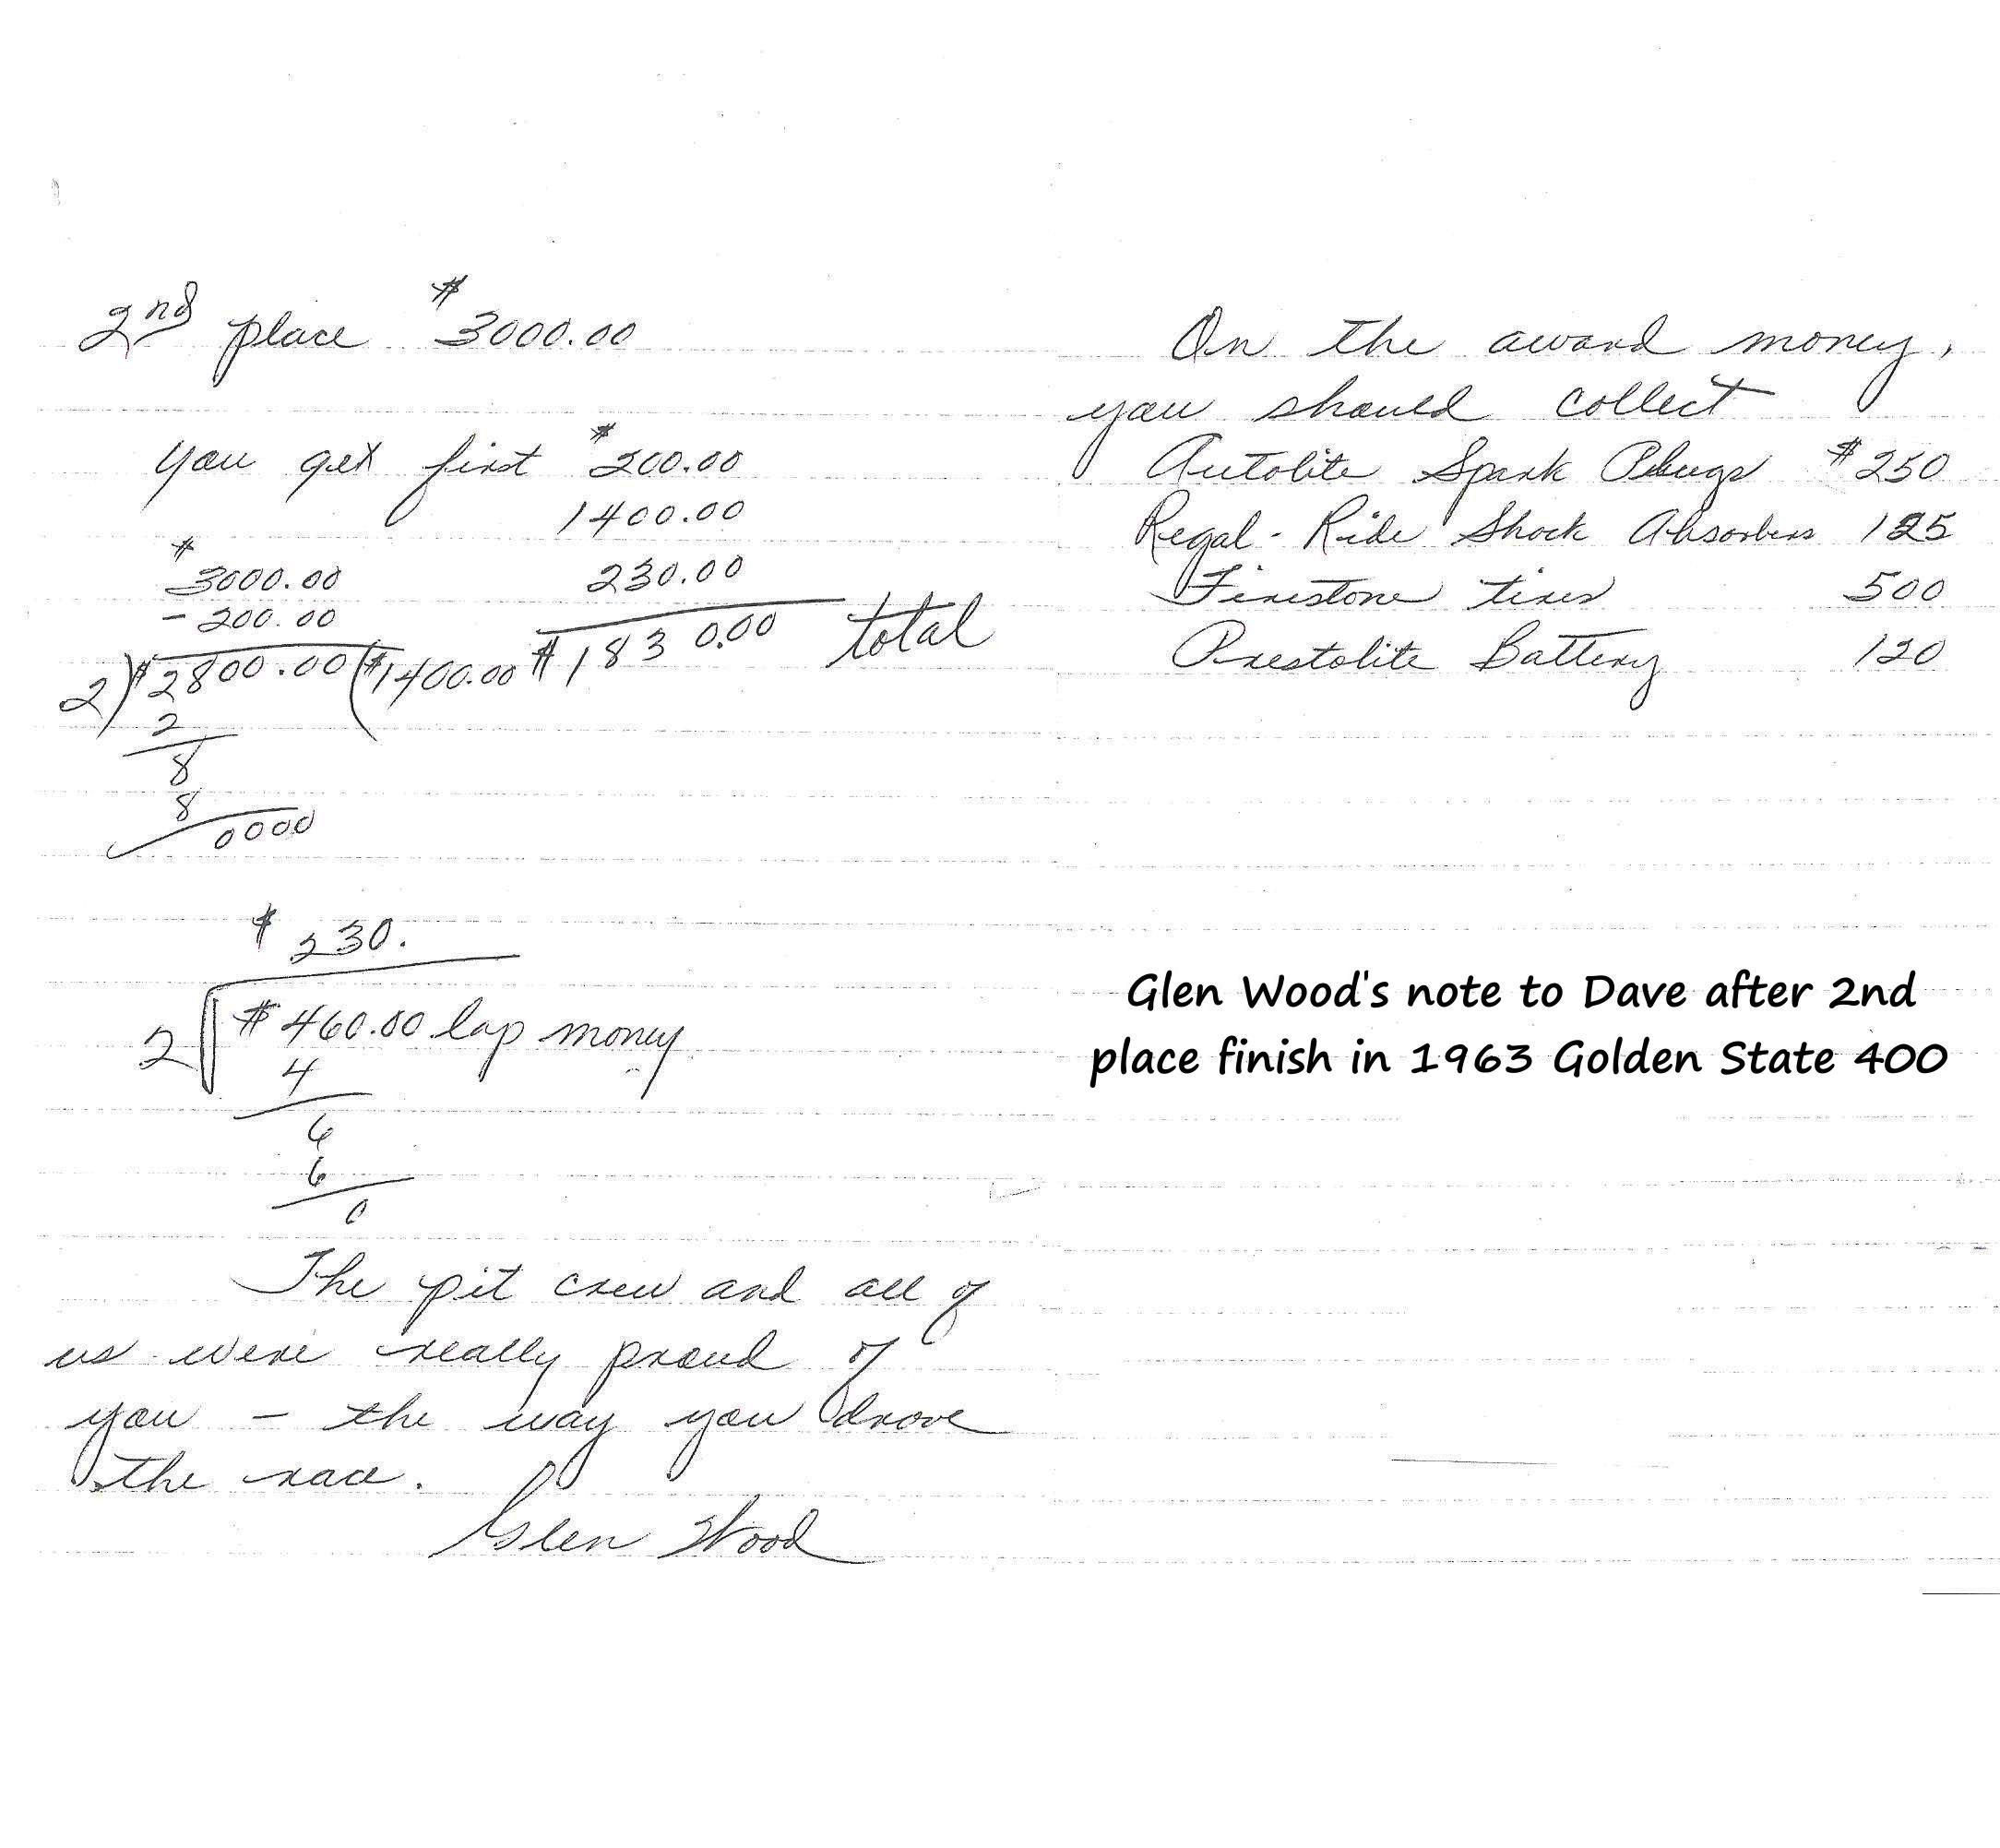 2nd place $3000.00
you get first $200.00
1400.00
230.00
$1830.00 total
$3000.00
- 200.00
2)$2800.00($1400.00
2
8
8
0000
$230.
2 $460.00 lap money
4
6
6
0
The pit crew and all of
us were really proud of
you - the way you drove
the race.
Glen Wood
On the award money,
you should collect
Autolite Spark Plugs $250
Regal-Ride Shock Absorbers 125
Firestone tires 500
Prestolite Battery 120
Glen Wood's note to Dave after 2nd
place finish in 1963 Golden State 400